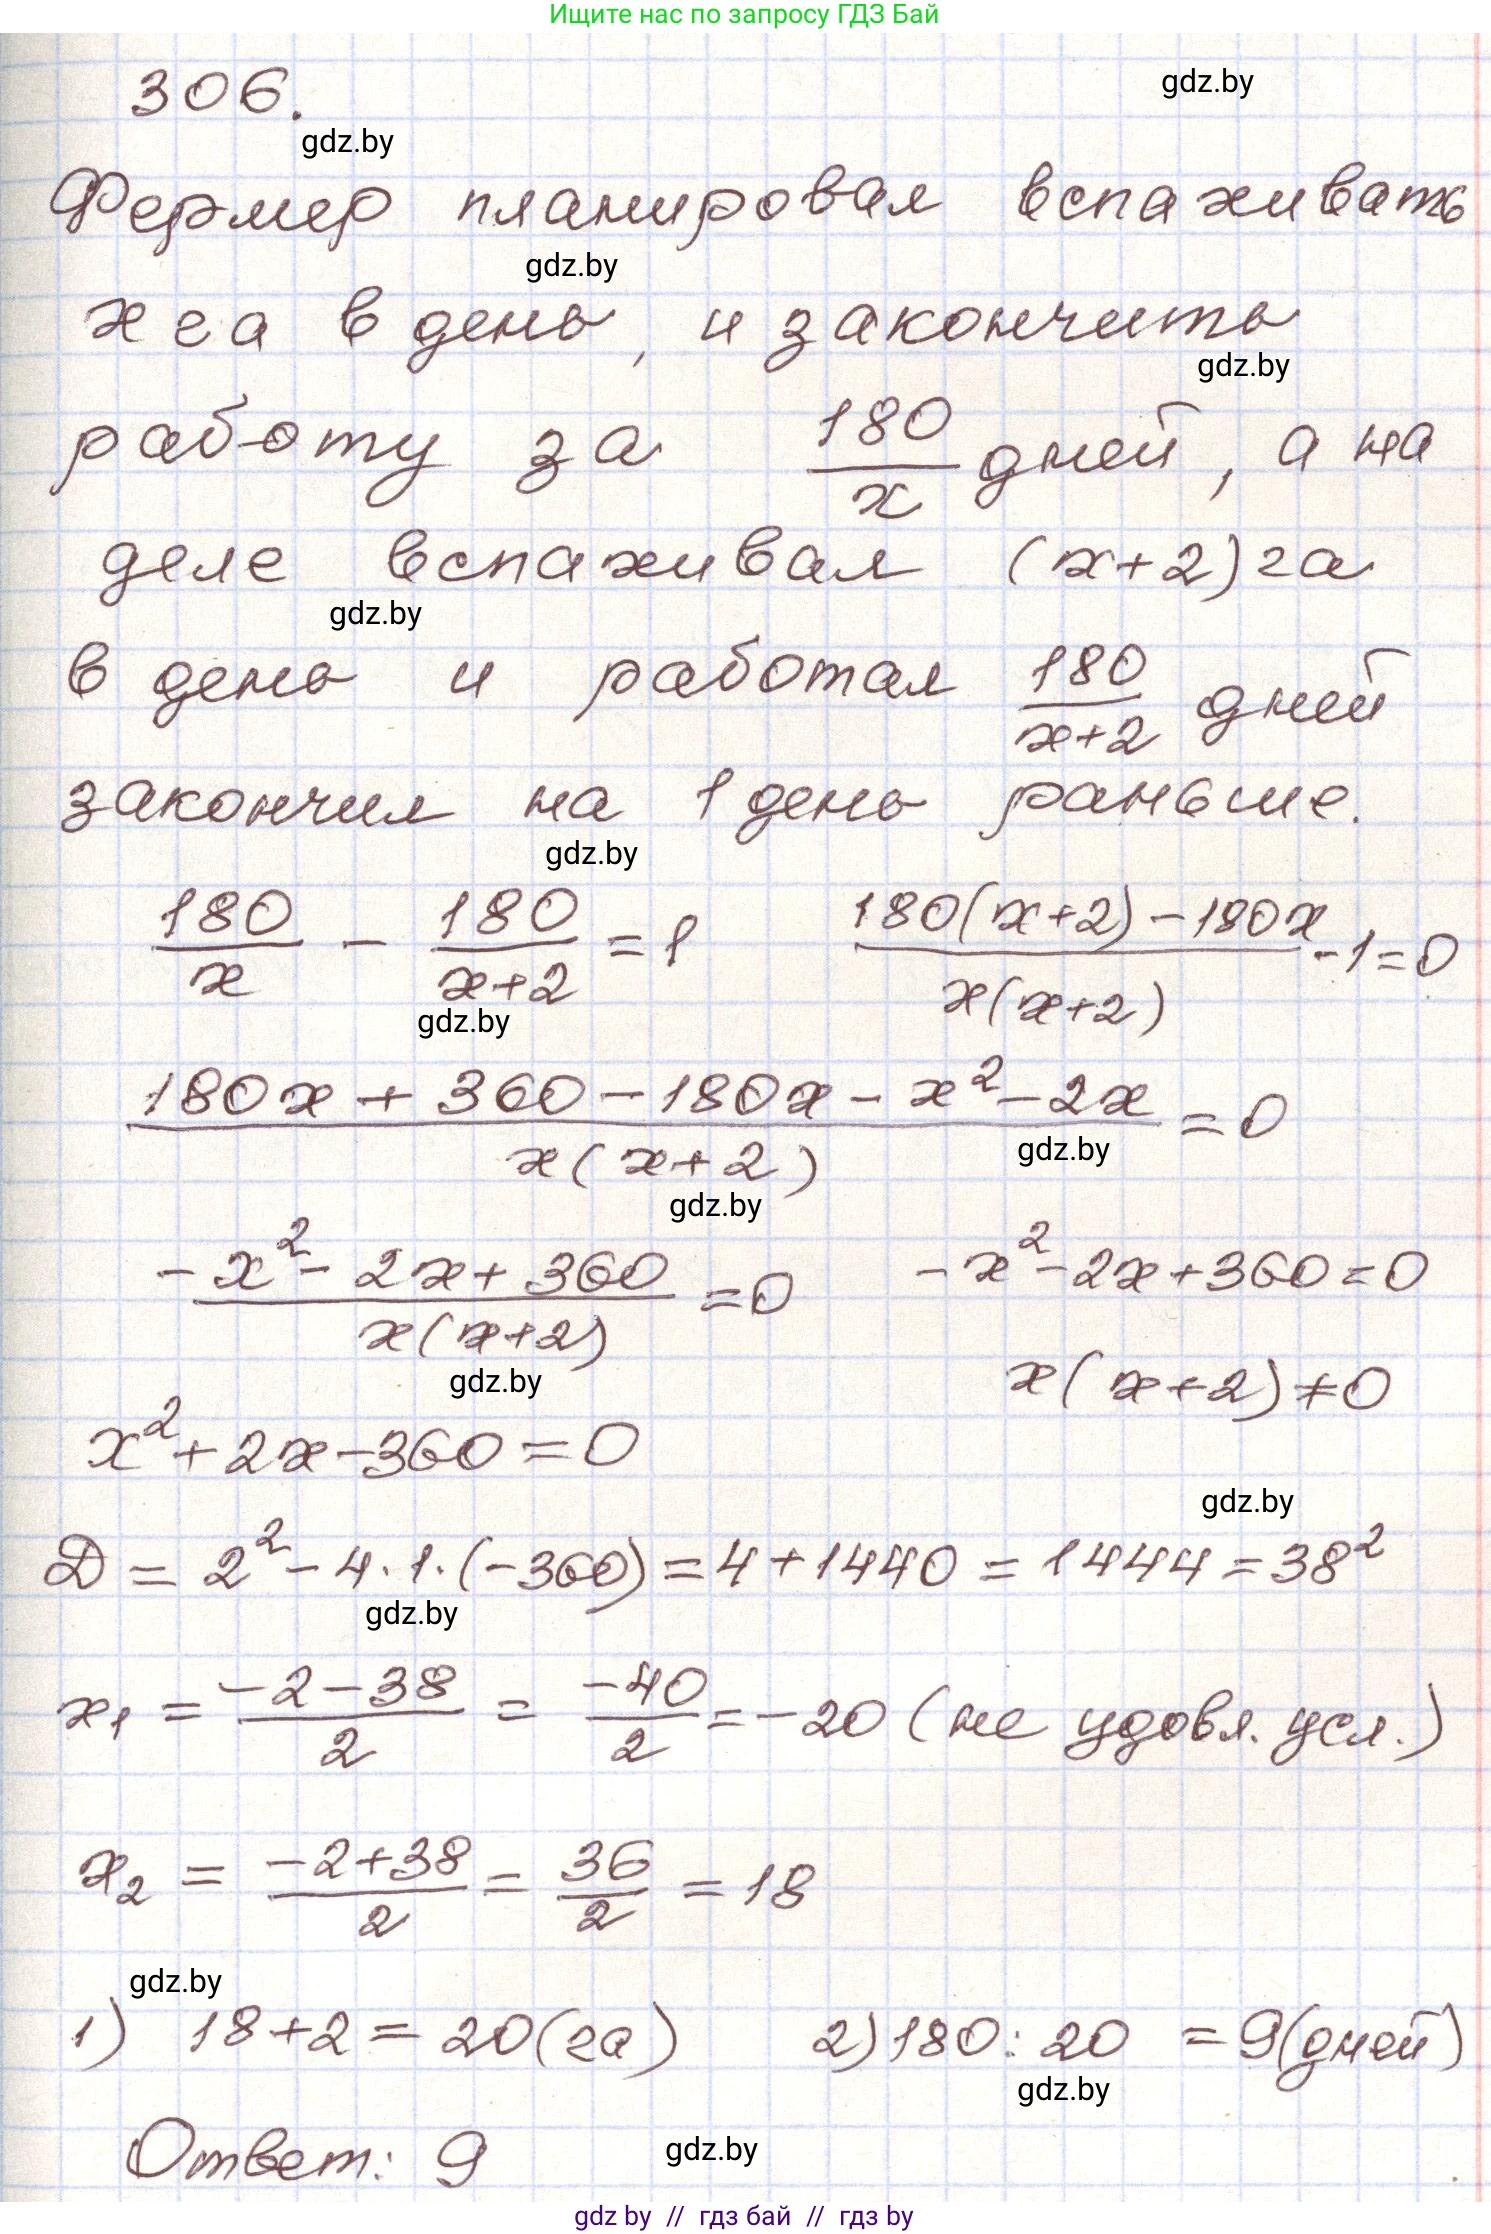 Ищите нас по запросу ГДЗ Бай
306.
gdz.by
gdz.by
Фермер планировал вспаживать
gdz.by
x га в день, и закончить
gdz.by
работу за 180/x дней, а на
деле вспаживал (x+2) га
gdz.by
в день и работал 180/(x+2) дней
закончил на 1 день раньше.
gdz.by
180/x - 180/(x+2) = 1    (180(x+2) - 180x)/(x(x+2)) - 1 = 0
gdz.by
(180x + 360 - 180x - x² - 2x)/(x(x+2)) = 0
gdz.by
gdz.by
(-x² - 2x + 360)/(x(x+2)) = 0    -x² - 2x + 360 = 0
x(x+2) ≠ 0
gdz.by
x² + 2x - 360 = 0
gdz.by
D = 2² - 4·1·(-360) = 4 + 1440 = 1444 = 38²
gdz.by
x₁ = (-2-38)/2 = -40/2 = -20 (не удовл. усл.)
x₂ = (-2+38)/2 = 36/2 = 18
gdz.by
1) 18+2 = 20 (га)    2) 180 : 20 = 9 (дней)
gdz.by
Ответ: 9
gdz.by
gdz by // гдз бай // гдз by